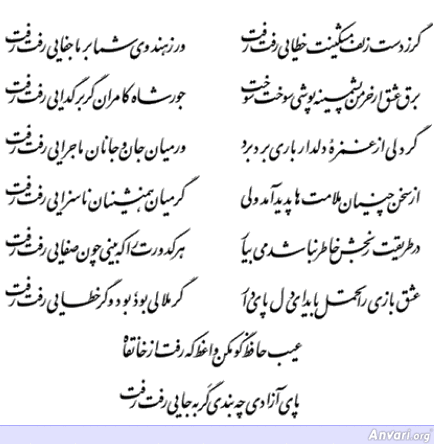 گر ز دست زلف مشکینت خطایی رفت رفت ور ز هندوی شما بر ما جفایی رفت رفت
برق عشق ار خرمن پشمینه پوشی سوخت سوخت جور شاه کامران گر بر گدایی رفت رفت
گر دلی از غمزهٔ دلدار باری برد برد ور میان جان و جانان ماجرایی رفت رفت
از سخن چینان ملامت ها پدید آمد ولی گر میان همنشینان ناسزایی رفت رفت
در طریقت رنجش خاطر نباشد می بیار هر کدورت را که بینی چون صفایی رفت رفت
عشق بازی را تحمل باید ای دل پای دار گر ملالی بود بود و گر خطایی رفت رفت
عیب حافظ گو مکن واعظ که رفت از خانقاه
پای آزادی چه بندی گر به جایی رفت رفت
Anvari.org